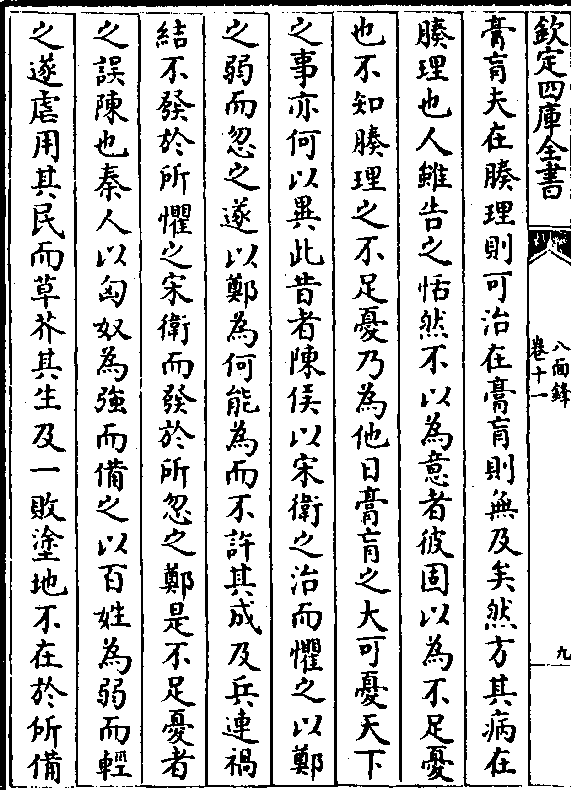 欽定四庫全書
八面鋒
卷十一
九
膏肓夫在腠理則可治在膏肓則無及矣然方其病在
腠理也人雖告之恬然不以為意者彼固以為不足憂
也不知腠理之不足憂乃為他日膏肓之大可憂天下
之事亦何以異此昔者陳侯以宋衛之治而懼之以鄭
之弱而忽之遂以鄭為何能為而不許其成及兵連禍
結不發於所懼之宋衛而發於所忽之鄭是不足憂者
之誤陳也秦人以匈奴為強而備之以百姓為弱而輕
之遂虐用其民而草芥其生及一敗塗地不在於所備